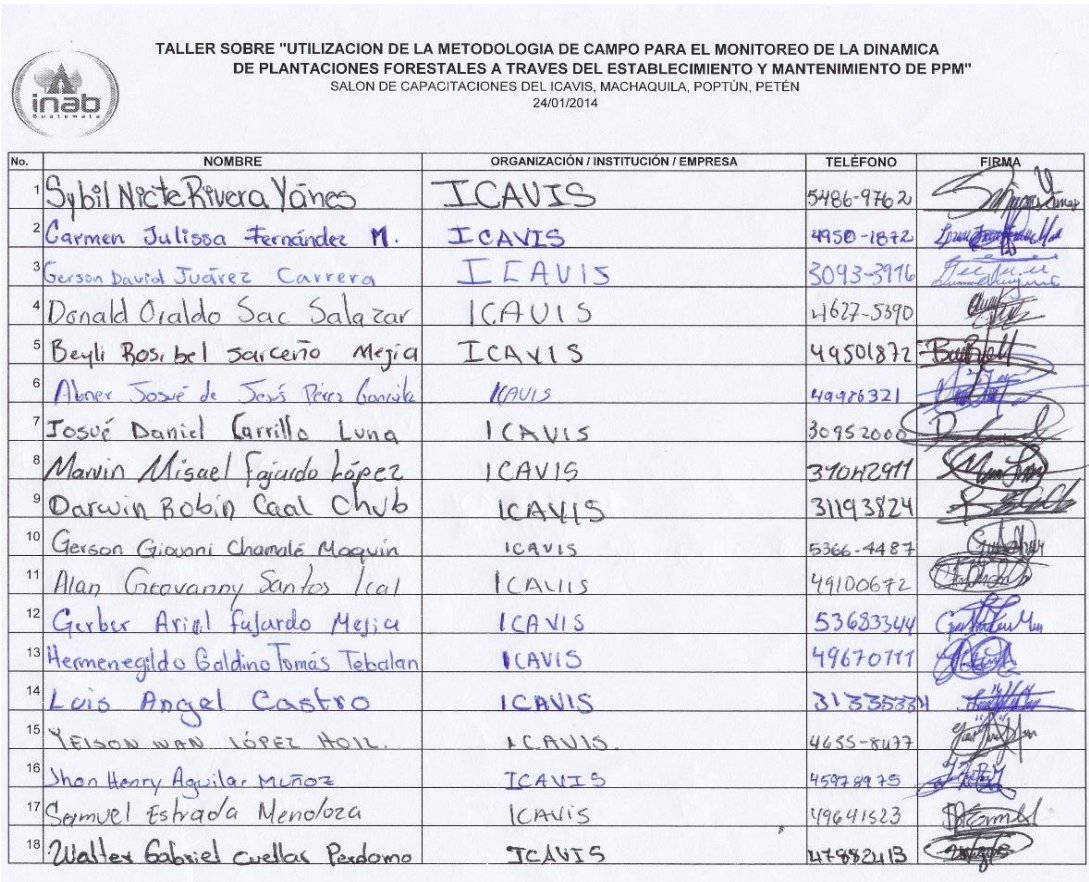 inab
Guatemala
TALLER SOBRE "UTILIZACION DE LA METODOLOGIA DE CAMPO PARA EL MONITOREO DE LA DINAMICA
DE PLANTACIONES FORESTALES A TRAVES DEL ESTABLECIMIENTO Y MANTENIMIENTO DE PPM"
SALON DE CAPACITACIONES DEL ICAVIS, MACHAQUILA, POPTÚN, PETÉN
24/01/2014
No. NOMBRE ORGANIZACIÓN / INSTITUCIÓN / EMPRESA TELÉFONO FIRMA
1 Sybil Nicte Rivera Yánes ICAVIS 5486-9762
2 Carmen Julissa Fernández M. ICAVIS 4950-1872
3 Gerson David Juárez Carrera ICAVIS 3093-3976
4 Donald Oraldo Sac Salazar ICAVIS 4627-5390
5 Beyli Rosibel Sarceño Mejia ICAVIS 49501872
6 Abner Josué de Jesús Pérez ICAVIS 49986321
7 Josué Daniel Carrillo Luna ICAVIS 30952000
8 Marvin Misael Fajardo López ICAVIS 31042911
9 Darwin Robin Caal Chub ICAVIS 31193824
10 Gerson Giovani Chamalé Maquin ICAVIS 5366-4487
11 Alan Geovanny Santos Ical ICAVIS 49100672
12 Gerber Ariel Fajardo Mejia ICAVIS 53683344
13 Hermenegildo Galdino Tomás Tebalan ICAVIS 49670111
14 Luis Angel Castro ICAVIS 31335334
15 YEISON IVAN LÓPEZ ICAVIS. 4655-8477
16 Jhon Henry Aguilar Muñoz ICAVIS 45978975
17 Samuel Estrada Mendoza ICAVIS 49641523
18 Walter Gabriel Cuellar Perdomo ICAVIS 47882413